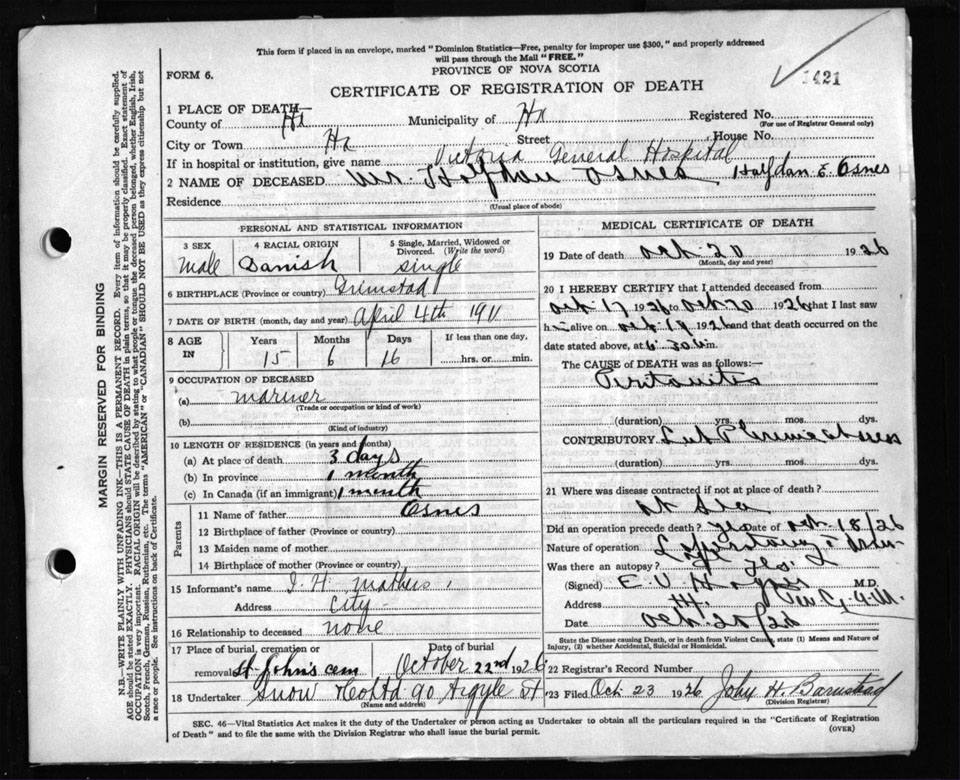 This form if placed in an envelope, marked "Dominion Statistics—Free, penalty for improper use $300," and properly addressed
will pass through the Mail "FREE."
FORM 6.
PROVINCE OF NOVA SCOTIA
1421
CERTIFICATE OF REGISTRATION OF DEATH
1 PLACE OF DEATH—
County of Hx Municipality of Hx Registered No.
(For use of Registrar General only)
City or Town Hx Street House No.
If in hospital or institution, give name Victoria General Hospital
2 NAME OF DECEASED Mr. Halfdan Osnes Halfdan E. Osnes
Residence
(Usual place of abode)
PERSONAL AND STATISTICAL INFORMATION
3 SEX 4 RACIAL ORIGIN 5 Single, Married, Widowed or Divorced. (Write the word)
Male Danish Single
6 BIRTHPLACE (Province or country) Grimstad
7 DATE OF BIRTH (month, day and year) April 4th 1911
8 AGE IN Years Months Days If less than one day,
15 6 16 hrs. or min.
9 OCCUPATION OF DECEASED
(a) mariner
(Trade or occupation or kind of work)
(b)
(Kind of industry)
10 LENGTH OF RESIDENCE (in years and months)
(a) At place of death 3 days
(b) In province 1 month
(c) In Canada (if an immigrant) 1 month
Parents
11 Name of father Osnes
12 Birthplace of father (Province or country)
13 Maiden name of mother
14 Birthplace of mother (Province or country)
15 Informant's name I. H. Mathers
Address City
16 Relationship to deceased none
17 Place of burial, cremation or removal St. John's cem
Date of burial October 22nd 1926
18 Undertaker Snow & Co Ltd 90 Argyle St
(Name and address)
MEDICAL CERTIFICATE OF DEATH
19 Date of death Oct. 20 1926
(Month, day and year)
20 I HEREBY CERTIFY that I attended deceased from
Oct 17 1926 to Oct 20 1926 that I last saw
him alive on Oct. 19 1926 and that death occurred on the
date stated above, at 6.30 a.m.
The CAUSE of DEATH was as follows:—
Peritonitis
(duration) yrs. mos. dys.
CONTRIBUTORY
(duration) yrs. mos. dys.
21 Where was disease contracted if not at place of death?
At Sea
Did an operation precede death? yes Date of Oct. 18/26
Nature of operation Laparotomy
Was there an autopsy? Yes.
(Signed) E. V. M.D.
Address
Date Oct. 20/26
State the Disease causing Death, or in death from Violent Causes, state (1) Means and Nature of
Injury, (2) whether Accidental, Suicidal or Homicidal.
22 Registrar's Record Number
23 Filed Oct 23 1926 John H. Barnstead
(Division Registrar)
SEC. 46—Vital Statistics Act makes it the duty of the Undertaker or person acting as Undertaker to obtain all the particulars required in the "Certificate of Registration
of Death" and to file the same with the Division Registrar who shall issue the burial permit.
(OVER)
MARGIN RESERVED FOR BINDING
N.B.—WRITE PLAINLY WITH UNFADING INK—THIS IS A PERMANENT RECORD. Every item of information should be carefully supplied.
AGE should be stated EXACTLY. PHYSICIANS should STATE CAUSE OF DEATH in plain terms, so that it may be properly classified. Exact statement of
OCCUPATION is very important. RACIAL ORIGIN will be described by stating to what people or tongue the deceased person belonged, whether English, Irish,
Scotch, French, German, Russian, Ruthenian, etc. The terms "AMERICAN" or "CANADIAN" SHOULD NOT BE USED as they express citizenship but not
a race or people. See instructions on back of Certificate.